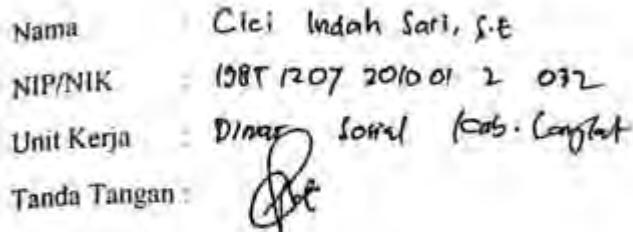 Nama : Cici Indah Sari, S.E
NIP/NIK : 1985 1207 2010 01 2 032
Unit Kerja : Dinas Sosial Kab. Langkat
Tanda Tangan :